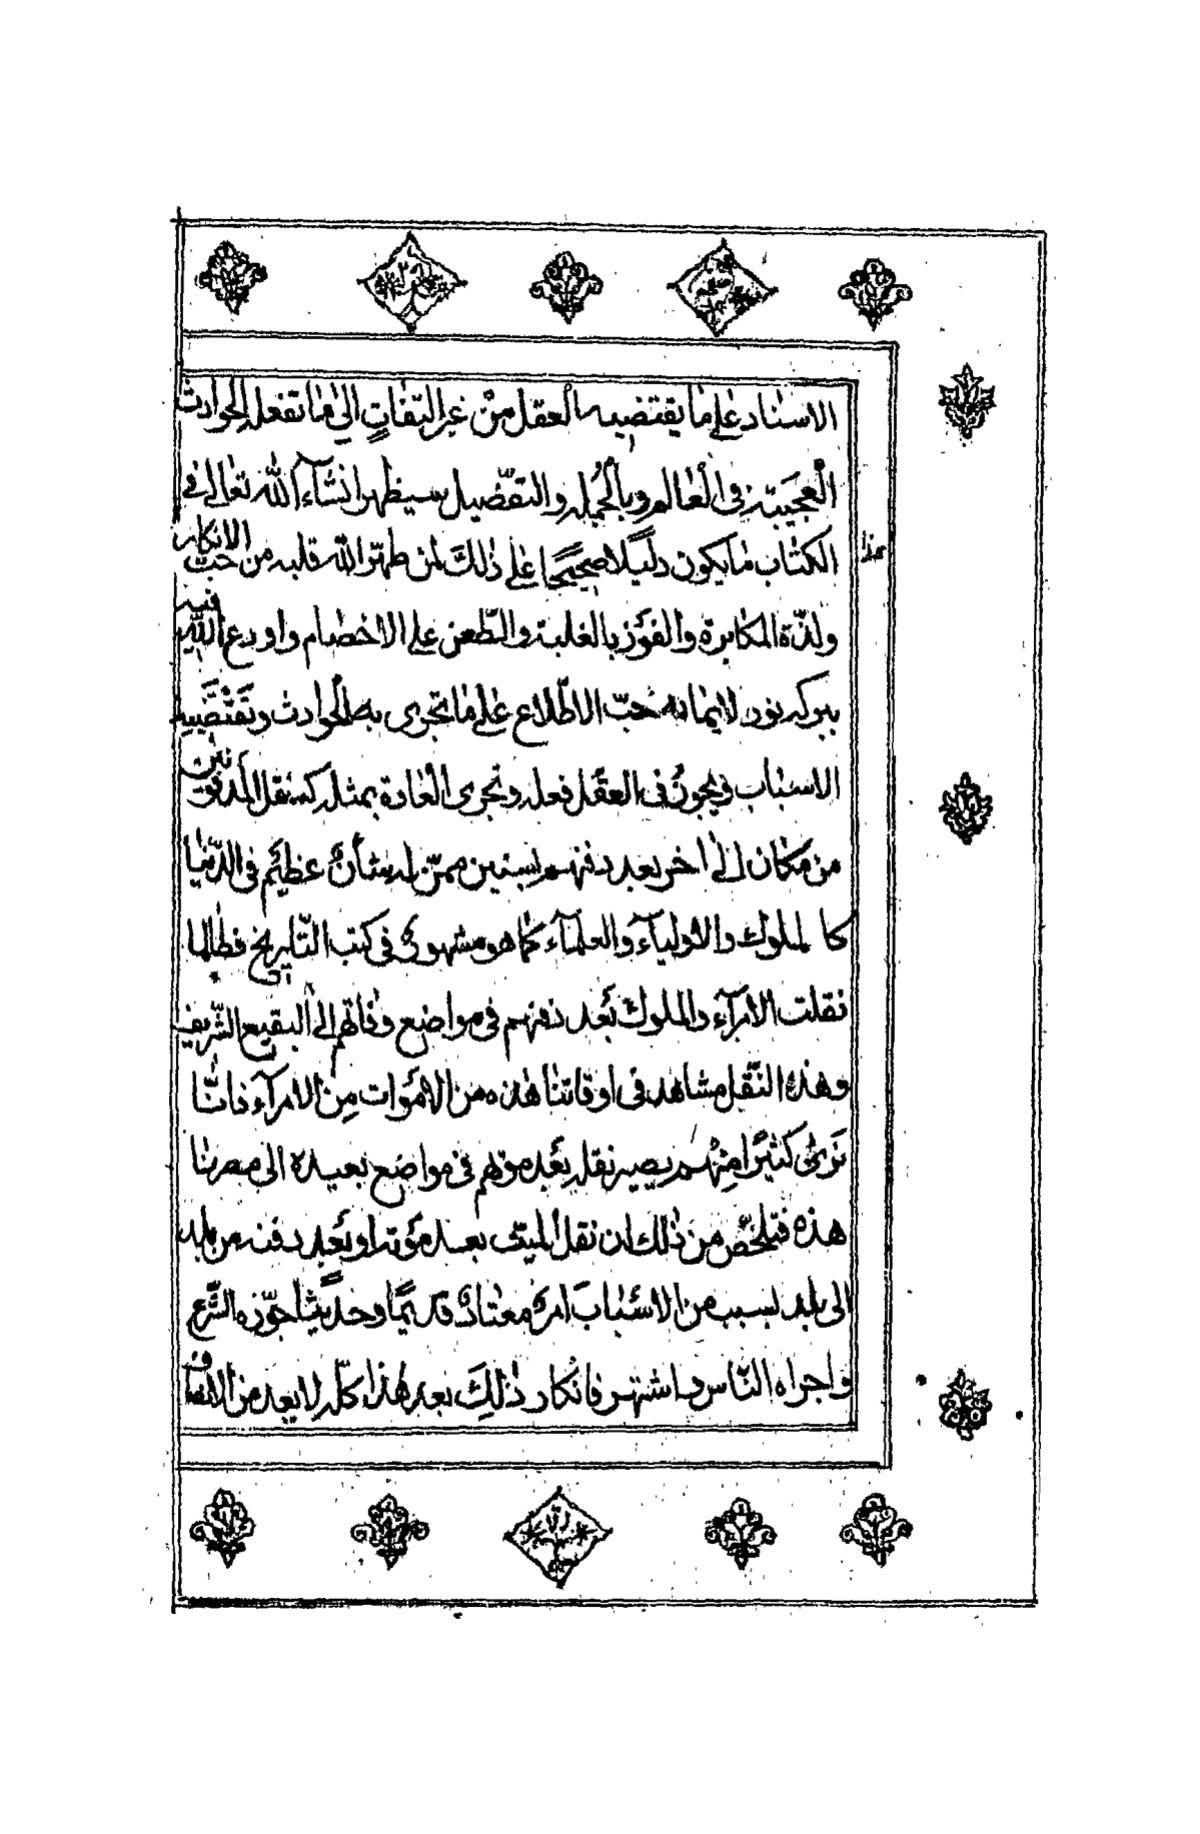 الاسناد على ما يقتضيه العقل من غير التفات الى ما تفعله الحوادث
العجيبة في العالم وبالجمله والتفضيل سيظهر انشآء الله تعالى في
الكتاب ما يكون دليلا صحيحا على ذلك لمن طهر الله قلبه من حب الانكار
هذا
ولذة المكابرة والفوز بالغلبة والطعن على الاخصام واودع الله فيه
ببركه نور لايمانه حب الاطلاع على ما تجرى به الحوادث وتقتضيه
الاسباب ويجوز في العقل فعله وتجرى العادة بمثله كنقل المدفونين
من مكان الى اخر بعد دفنهم بسنين ممن له شأن عظيم في الدنيا
كالملوك والاولياء والعلماء كما هو مشهور في كتب التاريخ فطالما
نقلت الامرآء والملوك بعد دفنهم في مواضع وفاتهم الى البقيع الشريف
وهذا النقل مشاهد في اوقاتنا هذه من الاموات من الامرآء فاننا
نرى كثيرا منهم يصير نقله بعد موتهم في مواضع بعيدة الى مصرنا
هذه فتلخص من ذلك ان نقل الميت بعد موته او بعد دفنه من بلد
الى بلد لسبب من الاسباب امر معتاد قديما وحديثا جوزه الشرع
واجراه الناس واشتهر فانكار ذلك بعد هذا كله لا يعد من الانصاف